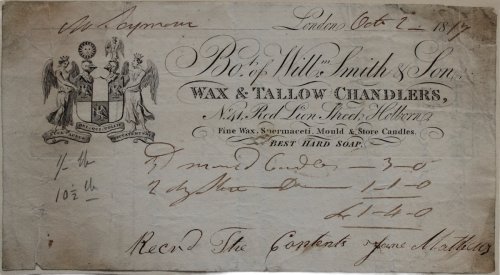 Mr Seymour
London Octr 2 1817
Bot. of Willm. Smith & Son,
WAX & TALLOW CHANDLERS,
No. 41, Red Lion Street, Holborn.
Fine Wax, Spermaceti, Mould & Store Candles.
BEST HARD SOAP.
3 mould Candles — 3-0
10½ lb
2 — Do — 1-1-0
1-4-0
Recvd The Contents Jane Matthews